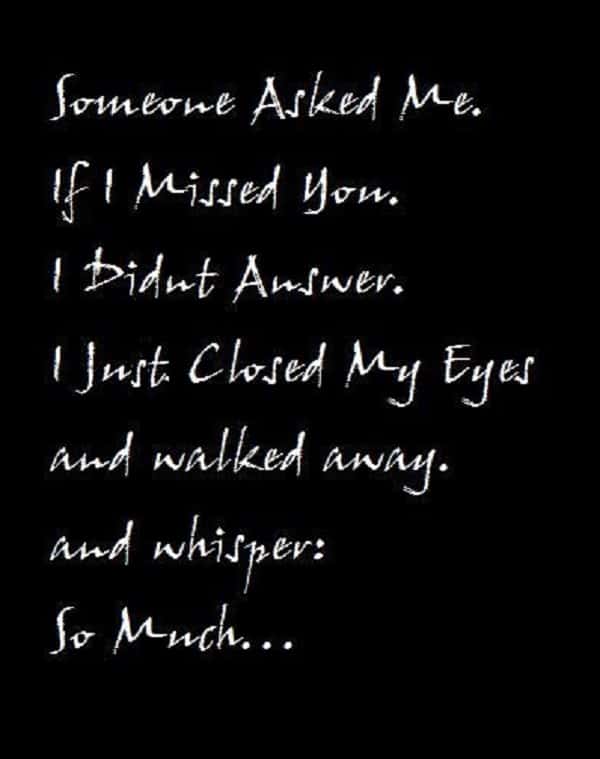 Someone Asked Me.
If I Missed You.
I Didnt Answer.
I Just Closed My Eyes
and walked away.
and whisper:
So Much...